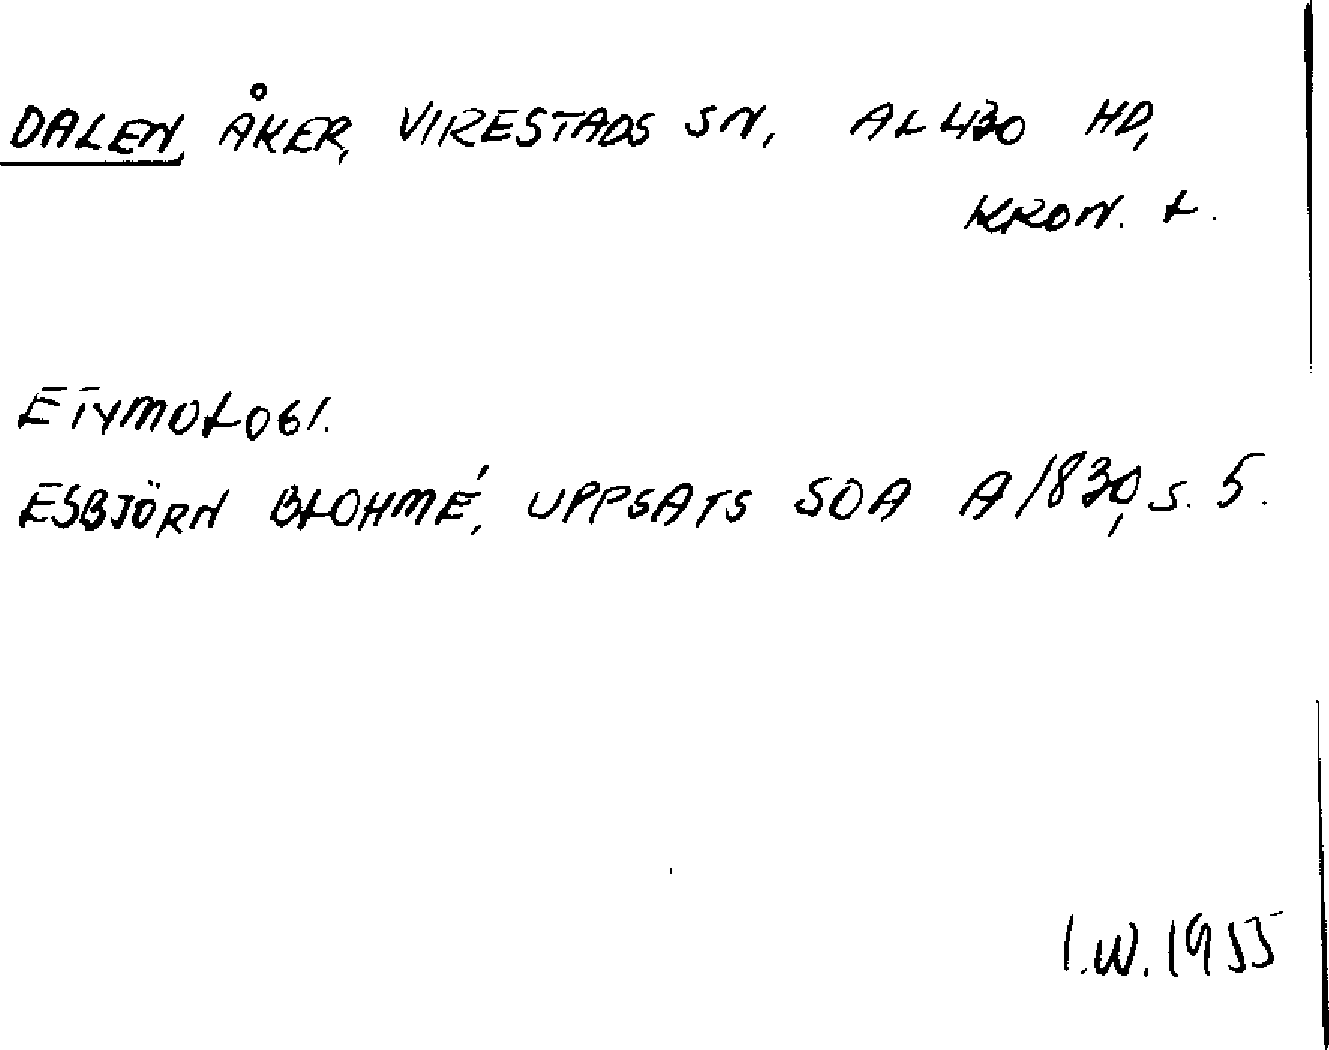 DALEN, ÅKER, VIRESTADS SN, ALLBO HD,
KRON. L.
ETYMOLOGI.
ESBJÖRN BLOHMÉ, UPPSATS SOA A/830, S. 5.
I.W. 1955